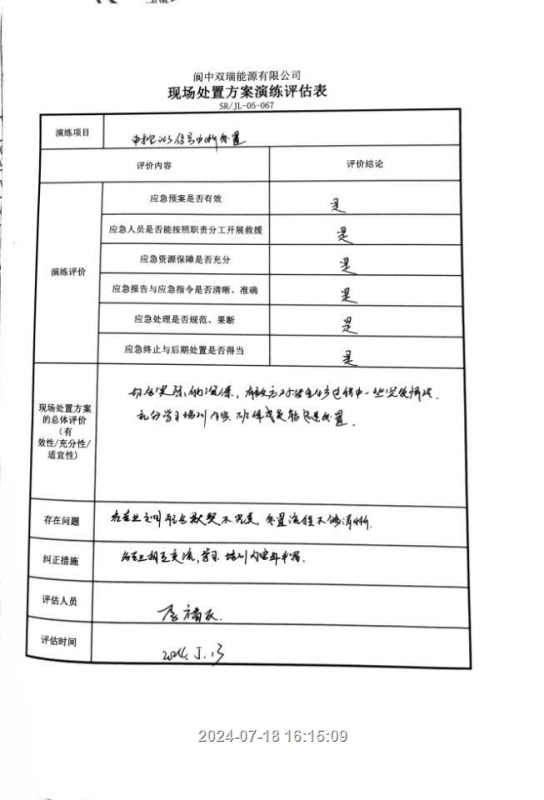 阆中双瑞能源有限公司
现场处置方案演练评估表
SR/JL-05-067
演练项目 中控DCS信号中断处置
评价内容 评价结论
演练评价
应急预案是否有效 是
应急人员是否能按照职责分工开展救援 是
应急资源保障是否充分 是
应急报告与应急指令是否清晰、准确 是
应急处理是否规范、果断 是
应急终止与后期处置是否得当 是
现场处置方案
的总体评价
(有
效性/充分性/
适宜性)
切合实际的演练,
过程中一些突发情况
充分学习培训内容
处置.
存在问题 各专业之间配合默契不完美,处置流程不够清晰.
纠正措施 各专业相互交流,学习培训内容
评估人员
评估时间 2024.5.13
2024-07-18 16:15:09